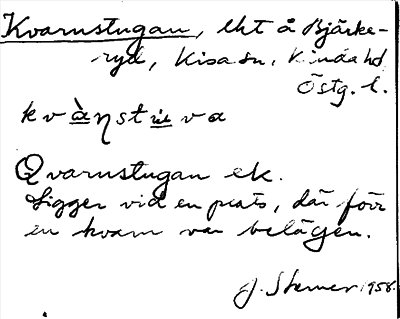 Kvarnstugan, lht å Bjärke-
ryd, Kisa sn, Kinda hd
Östg. l.
kvànstùva
Qvarnstugan ek.
Ligger vid en plats, där förr
en kvarn var belägen.
J. 1958.